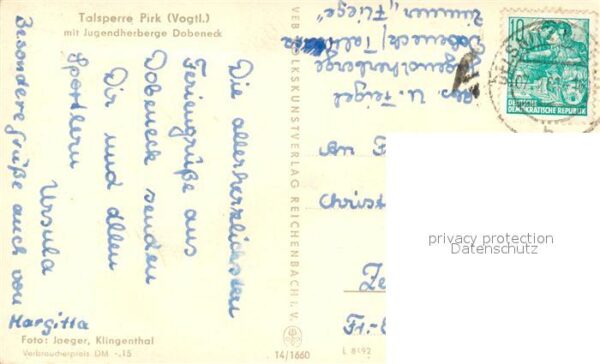 Talsperre Pirk (Vogtl.)
mit Jugendherberge Dobeneck
Die allerherzlichsten
Feriengrüße aus
Dobeneck senden
Dir und allen
Sportlern
Ursula
Besondere Grüße auch von
Margitta
Foto: Jaeger, Klingenthal
Verbraucherpreis DM -.15
VEB VOLKSKUNSTVERLAG REICHENBACH i. V.
14/1660
L 8192
Abs. U. Feigel
Jugendherberge
Dobeneck/Taltitz
Zimmer „Fliege"
An
Christ
Ze
10
DEUTSCHE
DEMOKRATISCHE REPUBLIK
privacy protection
Datenschutz